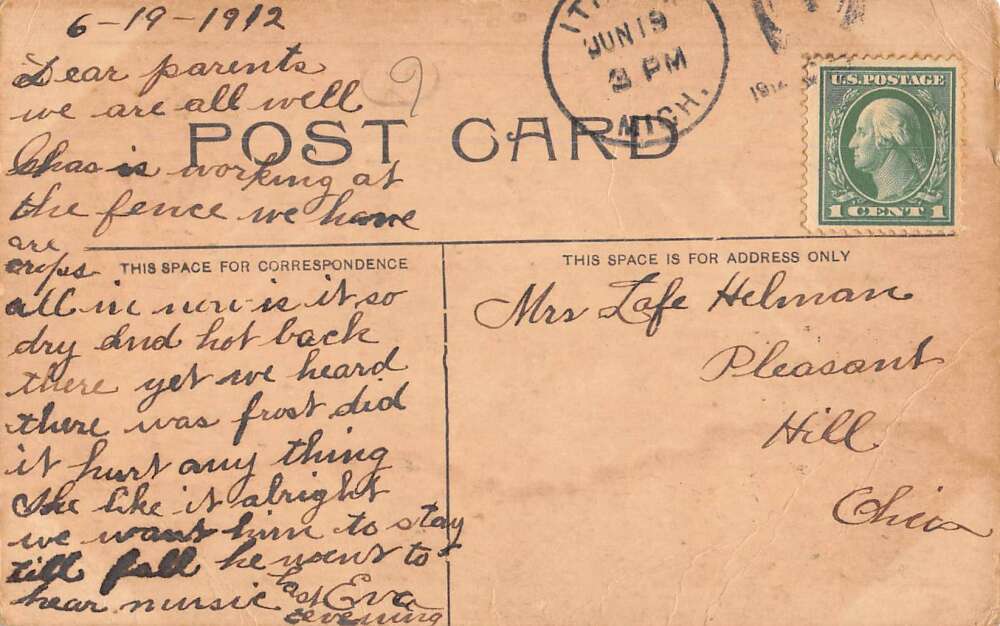 6-19-1912
Dear parents
we are all well
Chas is working at
the fence we have
are
crops
all in now is it so
dry and hot back
there yet we heard
there was frost did
it hurt any thing
like it alright
we want him to stay
till fall he went to
hear music last Eva
evening
POST CARD
THIS SPACE FOR CORRESPONDENCE
JUN 19
3 PM
MICH.
1912
U.S. POSTAGE
1 CENT 1
THIS SPACE IS FOR ADDRESS ONLY
Mrs Lafe Helman
Pleasant
Hill
Ohio